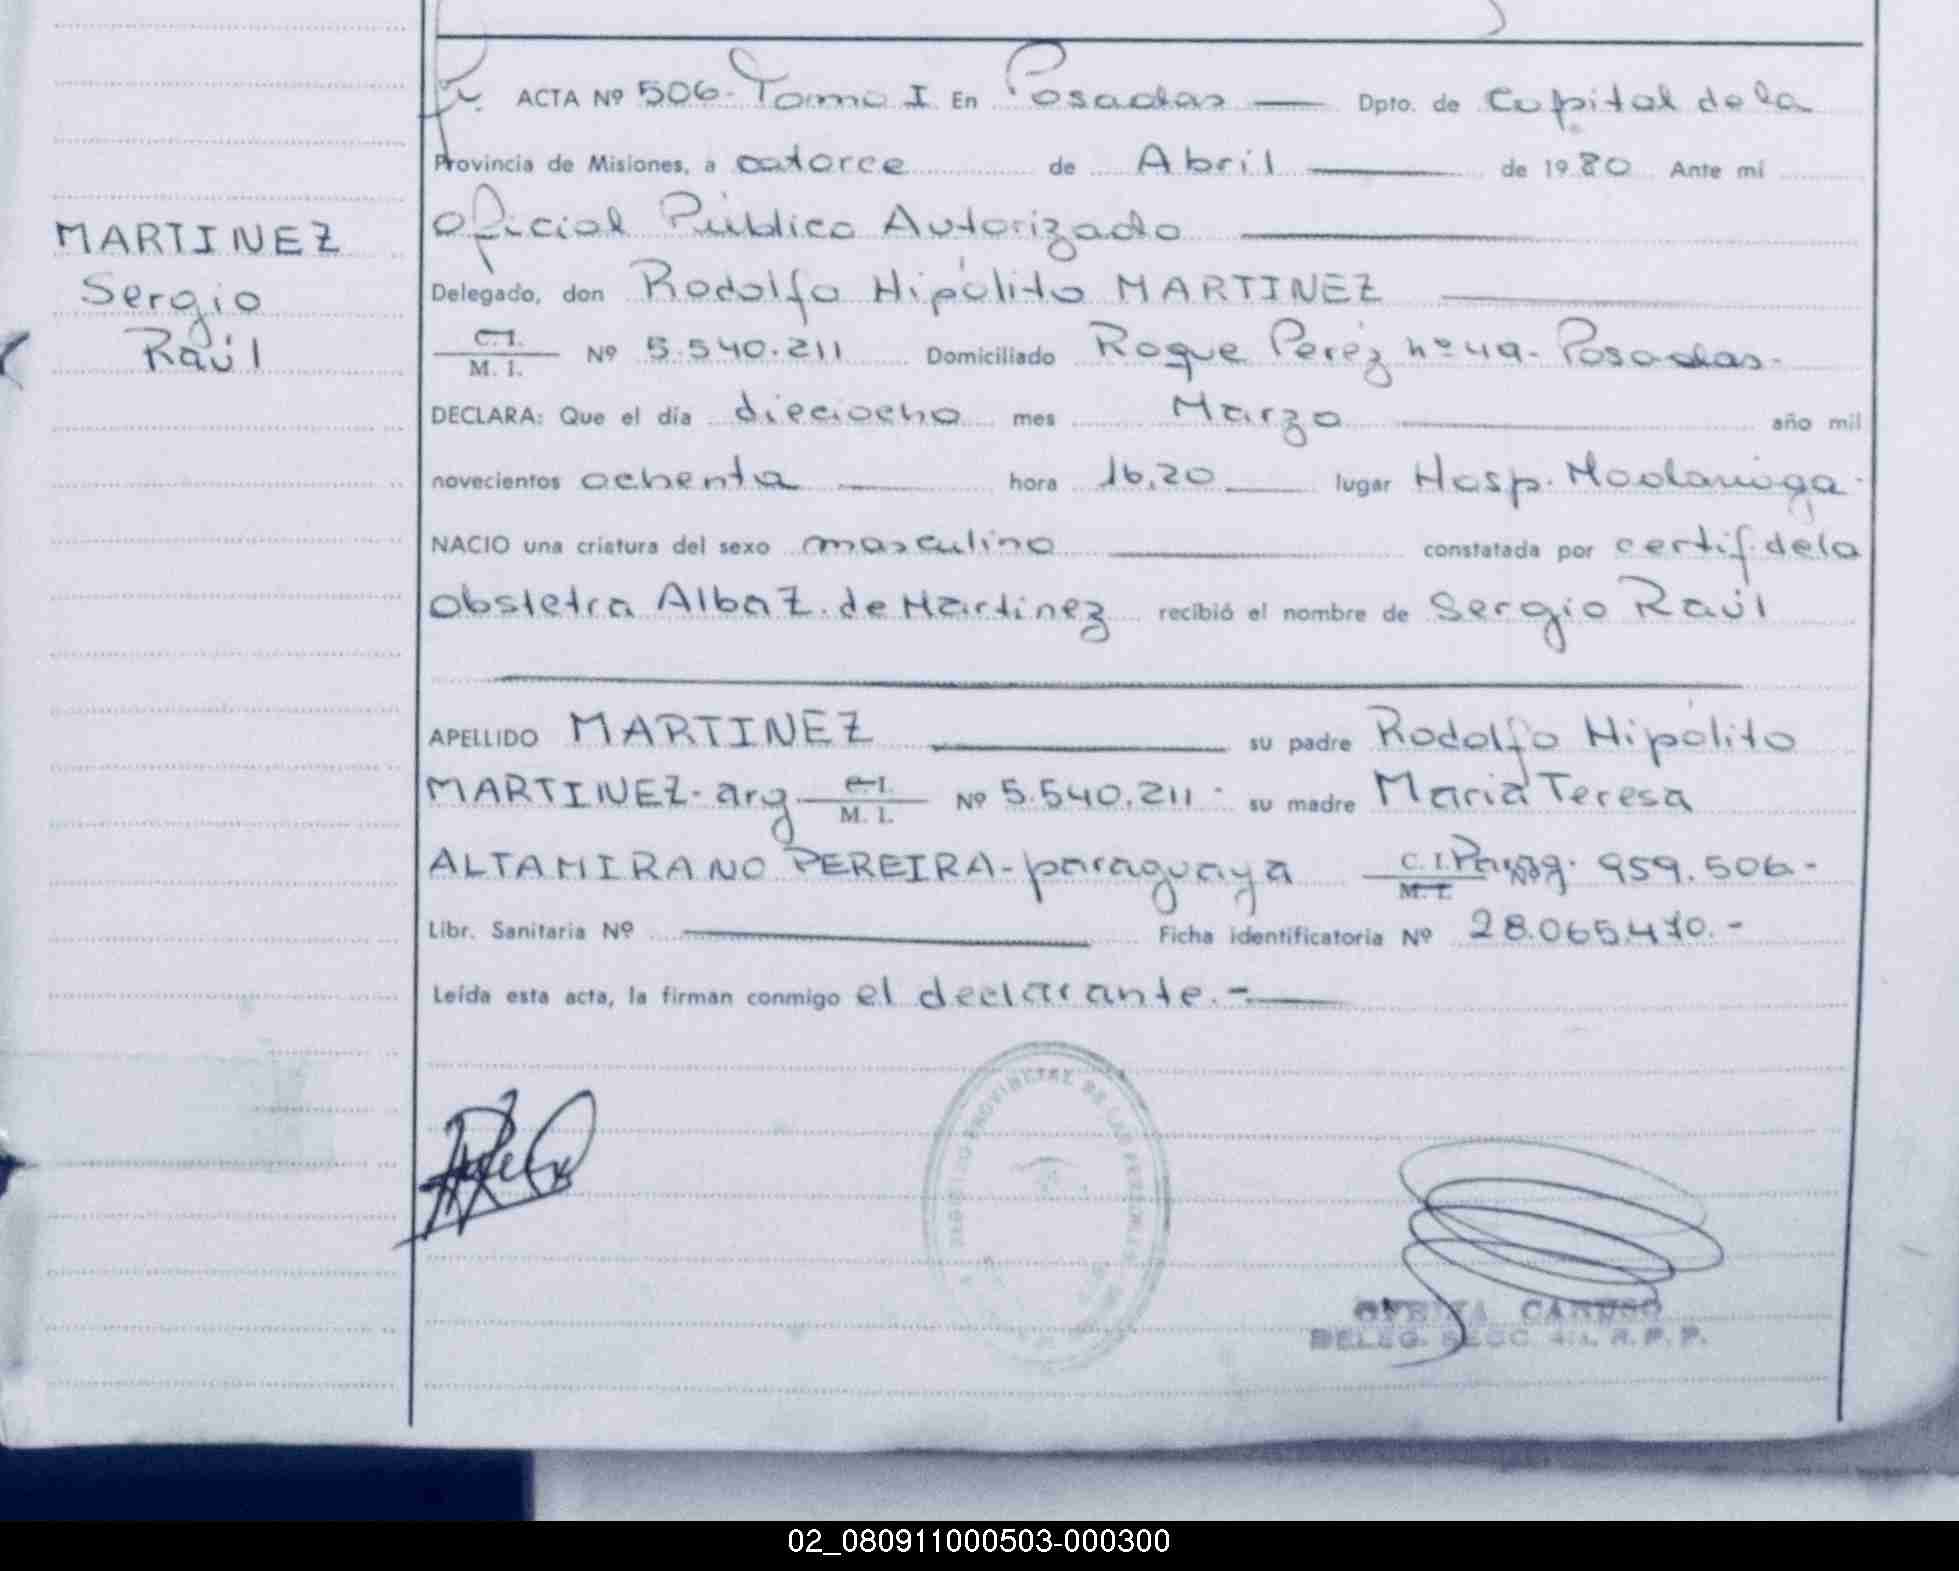 ACTA Nº 506- Tomo I En Posadas — Dpto. de Capital de la
Provincia de Misiones, a catorce de Abril — de 1980 Ante mí
Oficial Público Autorizado
MARTINEZ
Sergio
Raúl
Delegado, don Rodolfo Hipólito MARTINEZ
C. I.
M. I. Nº 5.540.211 Domiciliado Roque Peréz nº 49- Posadas.-
DECLARA: Que el día dieciocho mes Marzo año mil
novecientos ochenta — hora 16,20 — lugar Hosp. Madariaga.
NACIO una criatura del sexo masculino — constatada por certif. de la
obstetra Alba Z. de Martinez recibió el nombre de Sergio Raúl
APELLIDO MARTINEZ — su padre Rodolfo Hipólito
MARTINEZ- arg. C. I.
M. I. Nº 5.540.211- su madre María Teresa
ALTAMIRANO PEREIRA- paraguaya C. I.
M. I. 959.506.-
Libr. Sanitaria Nº — Ficha identificatoria Nº 28.065.470.-
Leída esta acta, la firman conmigo el declarante.-
REGISTRO PROVINCIAL DE LAS PERSONAS
CARUSO
DELEG. SECC. 4ta. R. P. P.
02_080911000503-000300